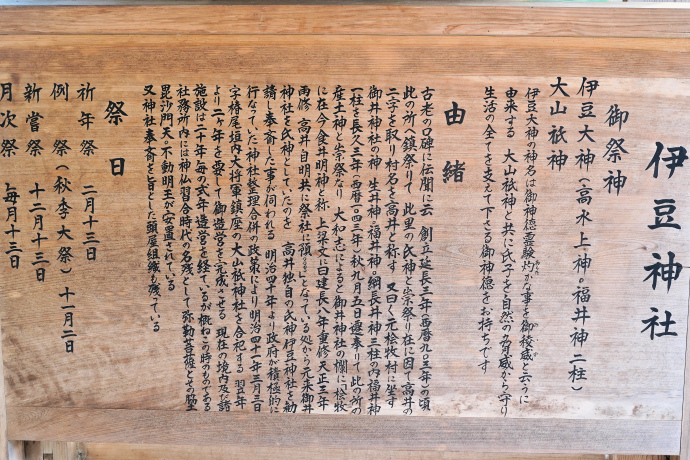 伊豆神社
御祭神
伊豆大神(高水上神。福井神二柱)
大山祇神
伊豆大神の神名は御神徳霊験灼かな事を御稜威と云うに
あらた
由来する 大山祇神と共に氏子を自然の脅威から守り
生活の全てを支えて下さる御神徳をお持ちです
由緒
古老の口碑に伝聞に云 創立延長三年(西暦九〇三年)の頃
此の所へ鎮祭りて 此里の氏神と崇祭り在に因て高井の
二字を取り村名を高井と称す 又曰く元桧牧村に坐す
御井神社の神 生井神。福井神。綱長井神三柱の内福井神
一柱を長久三年(西暦一〇四三年)秋九月五日遷奉りて 此の所の
産土神と崇祭なり 大和志によると御井神社の欄に桧牧
に在今食井明神と称 上梁文に曰建長八年重修 天正二年
両修 高井自明共に祭社に預るとなっている処から元来御井
神社を氏神としていたのを 高井独自の氏神伊豆神社を勧
請し奉斎した事が伺われる 明治四十年より政府が積極的に
行なっていた神社整理合併の政策により明治四十一年三月三日
字椿尾垣内大将軍鎮座の大山祇神社を合祀する 翌年
より二ヶ年を要して御造営を完成させる 現在の境内及び諸
施設は二十年毎の式年造営を経ているが概ねこの時のものである
社務所内には神仏習合時代の名残として弥勒菩薩とその脇士
毘沙門天。不動明王が安置されている
又神社奉斎を旨とした頭屋組織も残っている
祭日
祈年祭 二月十三日
例 祭(秋季大祭) 十一月二日
新嘗祭 十二月十三日
月次祭 毎月十三日